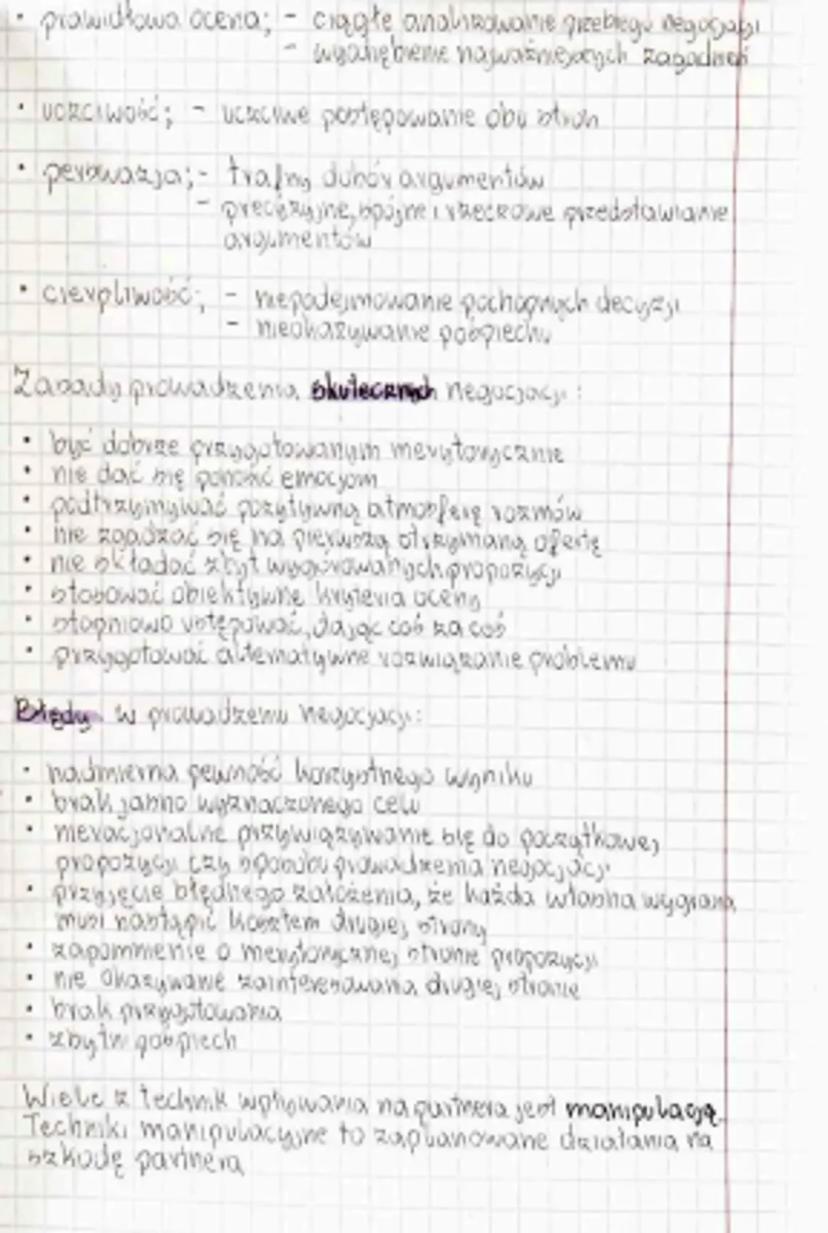 • prawidłowa ocena; - ciągłe analizowanie przebiegu negocjacji
- wyodrębienie najważniejszych zagadnień
• uczciwość; - uczciwe postępowanie obu stron
• perswazja; - trafny dobór argumentów
- precezyjne, spójne i rzeczowe przedstawianie
argumentów
• cierpliwość; - niepodejmowanie pochopnych decyzji
- nieokazywanie pośpiechu
Zasady prowadzenia skutecznych negocjacji:
• być dobrze przygotowanym merytorycznie
• nie dać się ponosić emocjom
• podtrzymywać pozytywną atmosferę rozmów
• nie zgadzać się na pierwszą otrzymaną ofertę
• nie składać zbyt wygórowanych propozycji
• stosować obiektywne kryteria oceny
• stopniowo ustępować, dając coś za coś
• przygotować alternatywne rozwiązanie problemu
Błędy w prowadzeniu negocjacji:
• nadmierna pewność korzystnego wyniku
• brak jasno wyznaczonego celu
• nieracjonalne przywiązywanie się do początkowej
propozycji czy sposobu prowadzenia negocjacji
• przyjęcie błędnego założenia, że każda własna wygrana
musi nastąpić kosztem drugiej strony
• zapomnienie o merytorycznej stronie propozycji
• nie okazywanie zainteresowania drugiej stronie
• brak przygotowania
• zbytni pośpiech
Wiele z technik wpływania na partnera jest manipulacją.
Techniki manipulacyjne to zaplanowane działania na
szkodę partnera